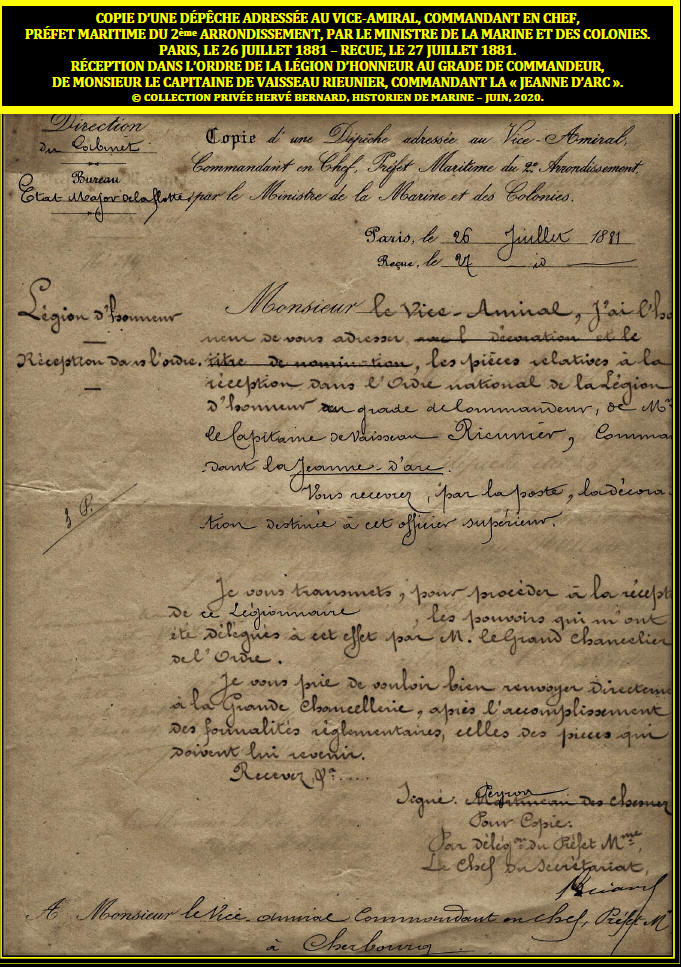 COPIE D'UNE DÉPÊCHE ADRESSÉE AU VICE-AMIRAL, COMMANDANT EN CHEF,
PRÉFET MARITIME DU 2ème ARRONDISSEMENT, PAR LE MINISTRE DE LA MARINE ET DES COLONIES.
PARIS, LE 26 JUILLET 1881 – RECUE, LE 27 JUILLET 1881.
RÉCEPTION DANS L'ORDRE DE LA LÉGION D'HONNEUR AU GRADE DE COMMANDEUR,
DE MONSIEUR LE CAPITAINE DE VAISSEAU RIEUNIER, COMMANDANT LA « JEANNE D'ARC ».
© COLLECTION PRIVÉE HERVÉ BERNARD, HISTORIEN DE MARINE – JUIN, 2020.
Direction
du Cabinet
Bureau
Etat Major de la flotte
Copie d'une Dépêche adressée au Vice-Amiral,
Commandant en Chef, Préfet Maritime du 2e Arrondissement,
par le Ministre de la Marine et des Colonies.
Paris, le 26 Juillet 1881
Reçue, le 27 do
Légion d'honneur
Réception dans l'ordre.
Monsieur le Vice-Amiral, J'ai l'ho
neur de vous adresser, avec l décoration et le
titre de nomination, les pièces relatives à la
réception dans l'Ordre national de la Légion
d'honneur au grade de Commandeur, de Mr
le Capitaine de Vaisseau Rieunier, Comman
dant la Jeanne-d'arc.
Vous recevrez, par la poste, la décora
tion destinée à cet officier supérieur.
3 P.
Je vous transmets, pour procéder à la récept
de ce Légionnaire, les pouvoirs qui m'ont
été délégués à cet effet par M. le Grand Chancelier
de l'Ordre.
Je vous prie de vouloir bien renvoyer directeme
à la Grande Chancellerie, après l'accomplissement
des formalités règlementaires, celles des pièces qui
doivent lui revenir.
Recevez, &a.....
Signé: Peyron Martineau des Chesnez
Pour Copie:
Par délégon du Préfet Mme,
Le Chef du Secrétariat,
A Monsieur le Vice-amiral Commandant en chef, Préfet Me
à Cherbourg